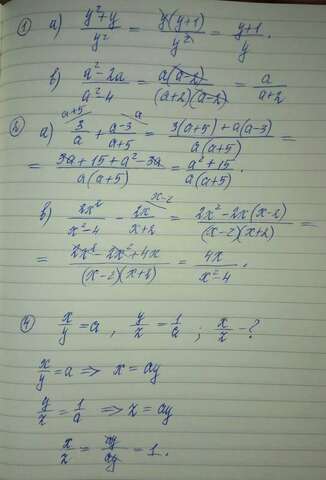 ① a) (y²+y)/y² = y(y+1)/y² = (y+1)/y .
b) (a²-2a)/(a²-4) = a(a-2)/((a+2)(a-2)) = a/(a+2)
② a) 3/a + (a-3)/(a+5) = (3(a+5)+a(a-3))/(a(a+5)) =
= (3a+15+a²-3a)/(a(a+5)) = (a²+15)/(a(a+5)) .
b) 2x²/(x²-4) - 2x/(x+2) = (2x²-2x(x-2))/((x-2)(x+2)) =
= (2x²-2x²+4x)/((x-2)(x+2)) = 4x/(x²-4) .
④ x/y = a , y/z = 1/a ; x/z - ?
x/y = a => x = ay
y/z = 1/a => z = ay
x/z = ay/ay = 1 .